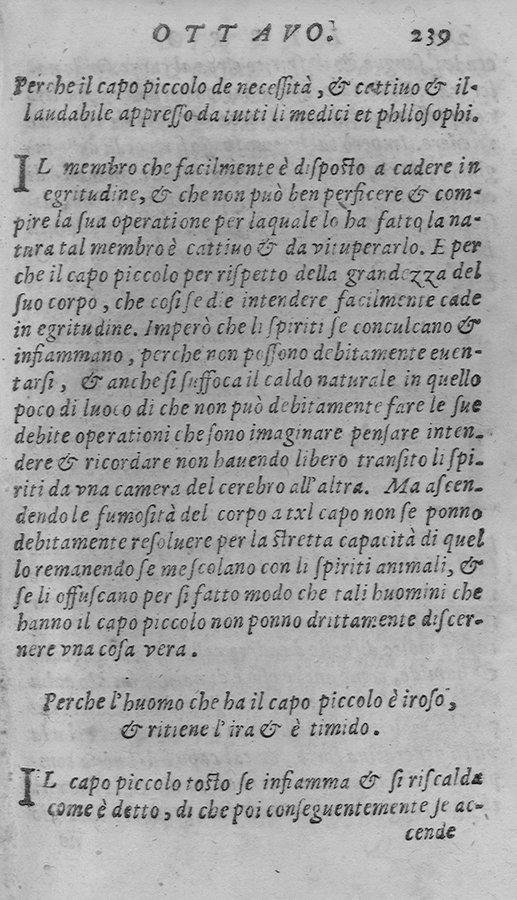 OTTAVO. 239
Perche il capo piccolo de necessità, & cattiuo & il-
laudabile appresso da tutti li medici et phllosophi.
IL membro che facilmente è disposto a cadere in
egritudine, & che non può ben perficere & com-
pire la sua operatione per laquale lo ha fatto la na-
tura tal membro è cattiuo & da vituperarlo. E per
che il capo piccolo per rispetto della grandezza del
suo corpo, che cosi se die intendere facilmente cade
in egritudine. Imperò che li spiriti se conculcano &
infiammano, perche non possono debitamente euen-
tarsi, & anche si suffoca il caldo naturale in quello
poco di luoco di che non può debitamente fare le sue
debite operationi che sono imaginare pensare inten-
dere & ricordare non hauendo libero transito li spi-
riti da vna camera del cerebro all'altra. Ma ascen-
dendo le fumosità del corpo a txl capo non se ponno
debitamente resoluere per la stretta capacità di quel
lo remanendo se mescolano con li spiriti animali, &
se li offuscano per si fatto modo che tali huomini che
hanno il capo piccolo non ponno drittamente discer-
nere vna cosa vera.
Perche l'huomo che ha il capo piccolo è iroso,
& ritiene l'ira & è timido.
IL capo piccolo tosto se infiamma & si riscalda
come è detto, di che poi conseguentemente se ac-
cende